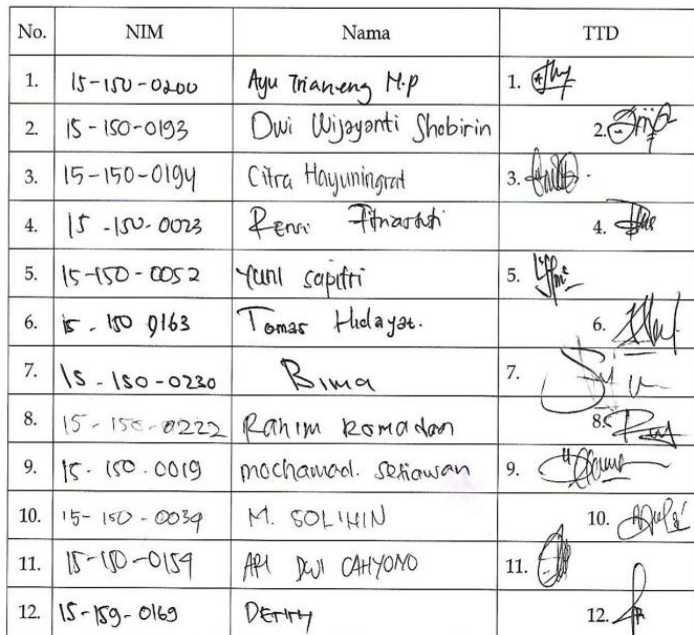 No. NIM Nama TTD
1. 15-150-0200 Ayu Trianeng M.P 1.
2. 15-150-0193 Dwi Wijayanti Shobirin 2.
3. 15-150-0194 Citra Hayuningrat 3.
4. 15-150-0023 Renri 4.
5. 15-150-0052 Yuni sapitri 5.
6. 15-150 0163 Tomas Hidayat. 6.
7. 15-150-0230 Bima 7.
8. 15-150-0222 Rahim Romadan 8.
9. 15-150-0019 mochamad. setiawan 9.
10. 15-150-0039 M. SOLIHIN 10.
11. 15-150-0154 ARI DWI CAHYONO 11.
12. 15-159-0169 12.